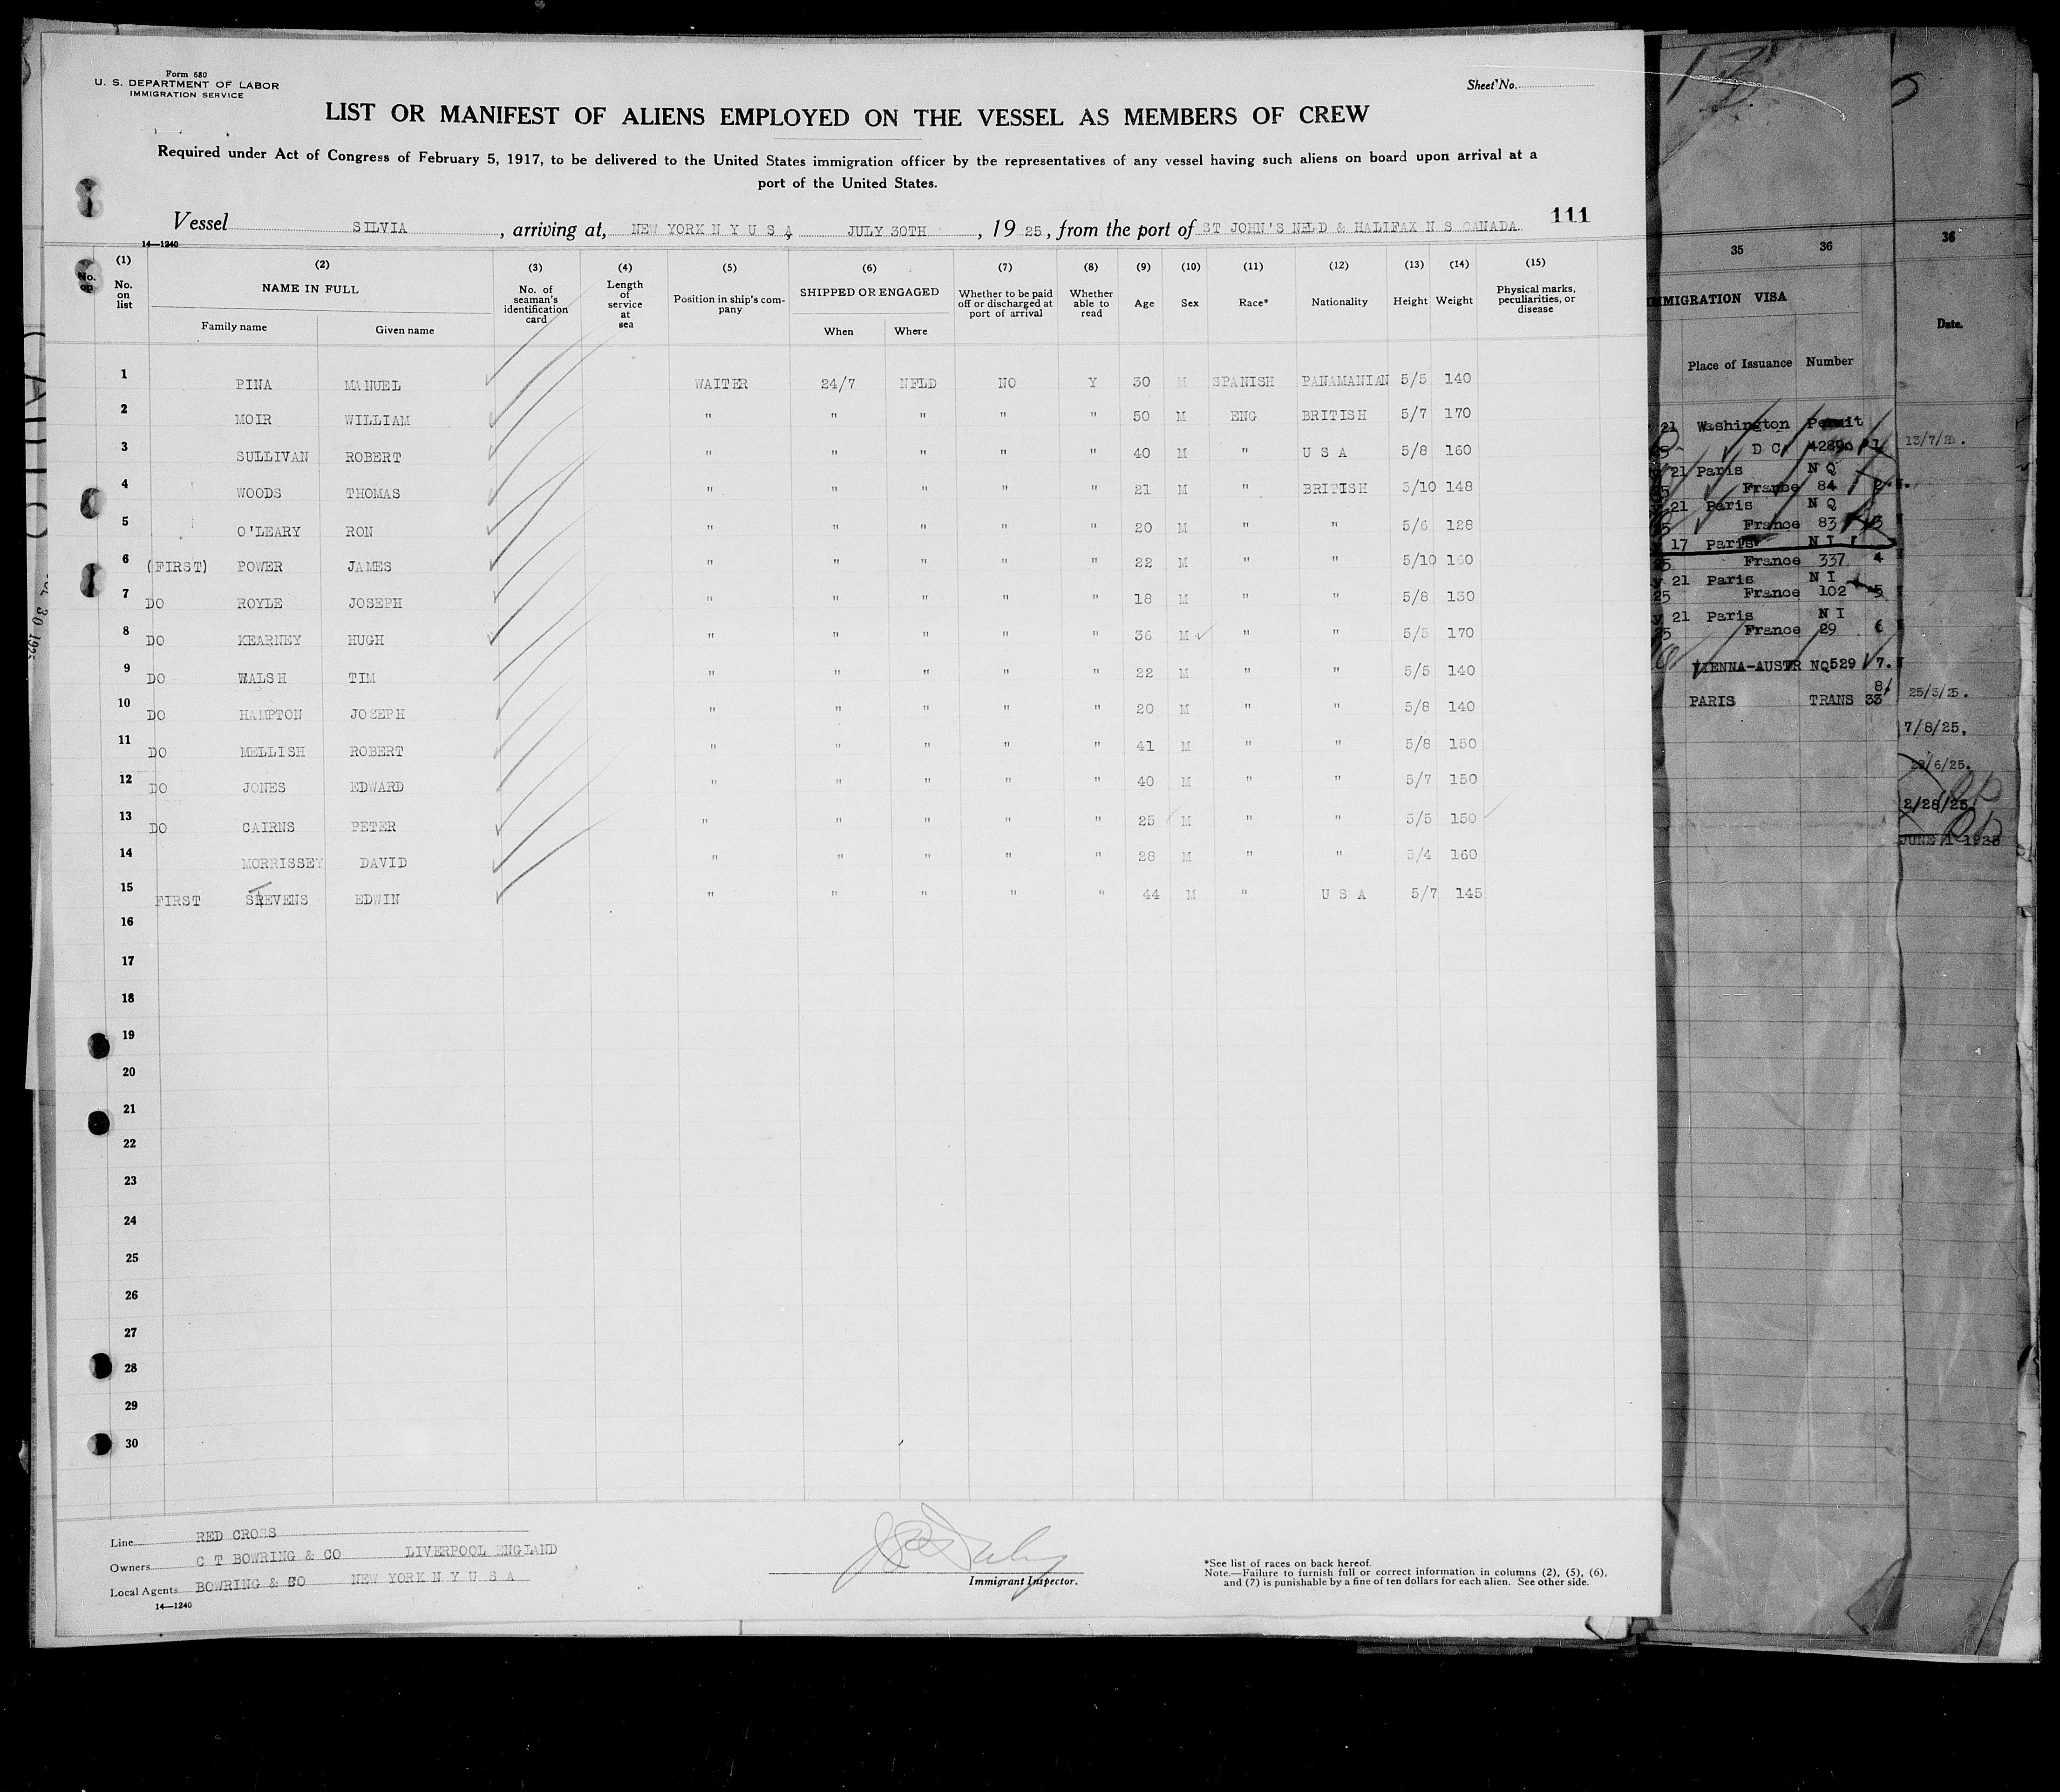 Form 680
U. S. DEPARTMENT OF LABOR
IMMIGRATION SERVICE
Sheet No.
LIST OR MANIFEST OF ALIENS EMPLOYED ON THE VESSEL AS MEMBERS OF CREW
Required under Act of Congress of February 5, 1917, to be delivered to the United States immigration officer by the representatives of any vessel having such aliens on board upon arrival at a
port of the United States.
111
Vessel SILVIA, arriving at, NEW YORK N Y U S A, JULY 30TH, 1925, from the port of ST JOHN'S NFLD & HALIFAX N S CANADA.
14—1240
(1) (2) (3) (4) (5) (6) (7) (8) (9) (10) (11) (12) (13) (14) (15)
No. on list NAME IN FULL Family name Given name No. of seaman's identification card Length of service at sea Position in ship's company SHIPPED OR ENGAGED When Where Whether to be paid off or discharged at port of arrival Whether able to read Age Sex Race* Nationality Height Weight Physical marks, peculiarities, or disease
1 PINA MANUEL WAITER 24/7 NFLD NO Y 30 M SPANISH PANAMANIAN 5/5 140
2 MOIR WILLIAM " " " " " 50 M ENG BRITISH 5/7 170
3 SULLIVAN ROBERT " " " " " 40 M " U S A 5/8 160
4 WOODS THOMAS " " " " " 21 M " BRITISH 5/10 148
5 O'LEARY RON " " " " " 20 M " " 5/6 128
6 (FIRST) POWER JAMES " " " " " 22 M " " 5/10 160
7 DO ROYLE JOSEPH " " " " " 18 M " " 5/8 130
8 DO KEARNEY HUGH " " " " " 36 M " " 5/5 170
9 DO WALSH TIM " " " " " 22 M " " 5/5 140
10 DO HAMPTON JOSEPH " " " " " 20 M " " 5/8 140
11 DO MELLISH ROBERT " " " " " 41 M " " 5/8 150
12 DO JONES EDWARD " " " " " 40 M " " 5/7 150
13 DO CAIRNS PETER " " " " " 25 M " " 5/5 150
14 MORRISSEY DAVID " " " " " 28 M " " 5/4 160
15 FIRST STEVENS EDWIN " " " " " 44 M " U S A 5/7 145
16
17
18
19
20
21
22
23
24
25
26
27
28
29
30
Line RED CROSS
Owners C T BOWRING & CO LIVERPOOL ENGLAND
Local Agents BOWRING & CO NEW YORK N Y U S A
14—1240
Immigrant Inspector.
*See list of races on back hereof.
Note.—Failure to furnish full or correct information in columns (2), (5), (6),
and (7) is punishable by a fine of ten dollars for each alien. See other side.
35 36
IMMIGRATION VISA
Place of Issuance Number
21 Washington Permit
D C 42890 1
21 Paris N Q
France 84 2
21 Paris N Q
France 83 3
17 Paris N I
France 337 4
21 Paris N I
25 France 102 5
21 Paris N I
France 29 6
VIENNA-AUSTR NQ529 7.
PARIS TRANS 33 8
36
Date.
13/7/25.
25/3/25.
7/8/25.
22/6/25.
2/28/25
JUNE 1 1925